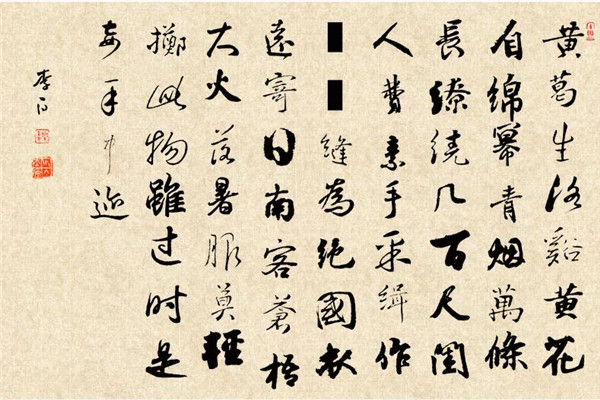 黃葛生洛谿黃花
自綿冪青烟萬條
長繚繞几百尺閨
人費素手采緝作
■■縫為絕國衣
遠寄日南客蒼梧
大火落暑服莫輕
擲此物雖过時是
妾手中迹
李白